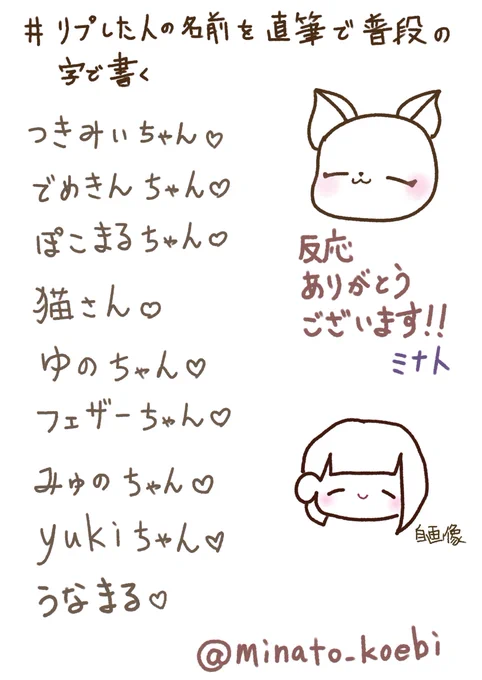 # リプした人の名前を直筆で普段の
字で書く
つきみぃちゃん♡
でめきんちゃん♡
ぽこまるちゃん♡
猫さん♡
ゆのちゃん♡
フェザーちゃん♡
みゅのちゃん♡
yukiちゃん♡
うなまる♡
反応
ありがとう
ございます!!
ミナト
自画像
@minato_koebi